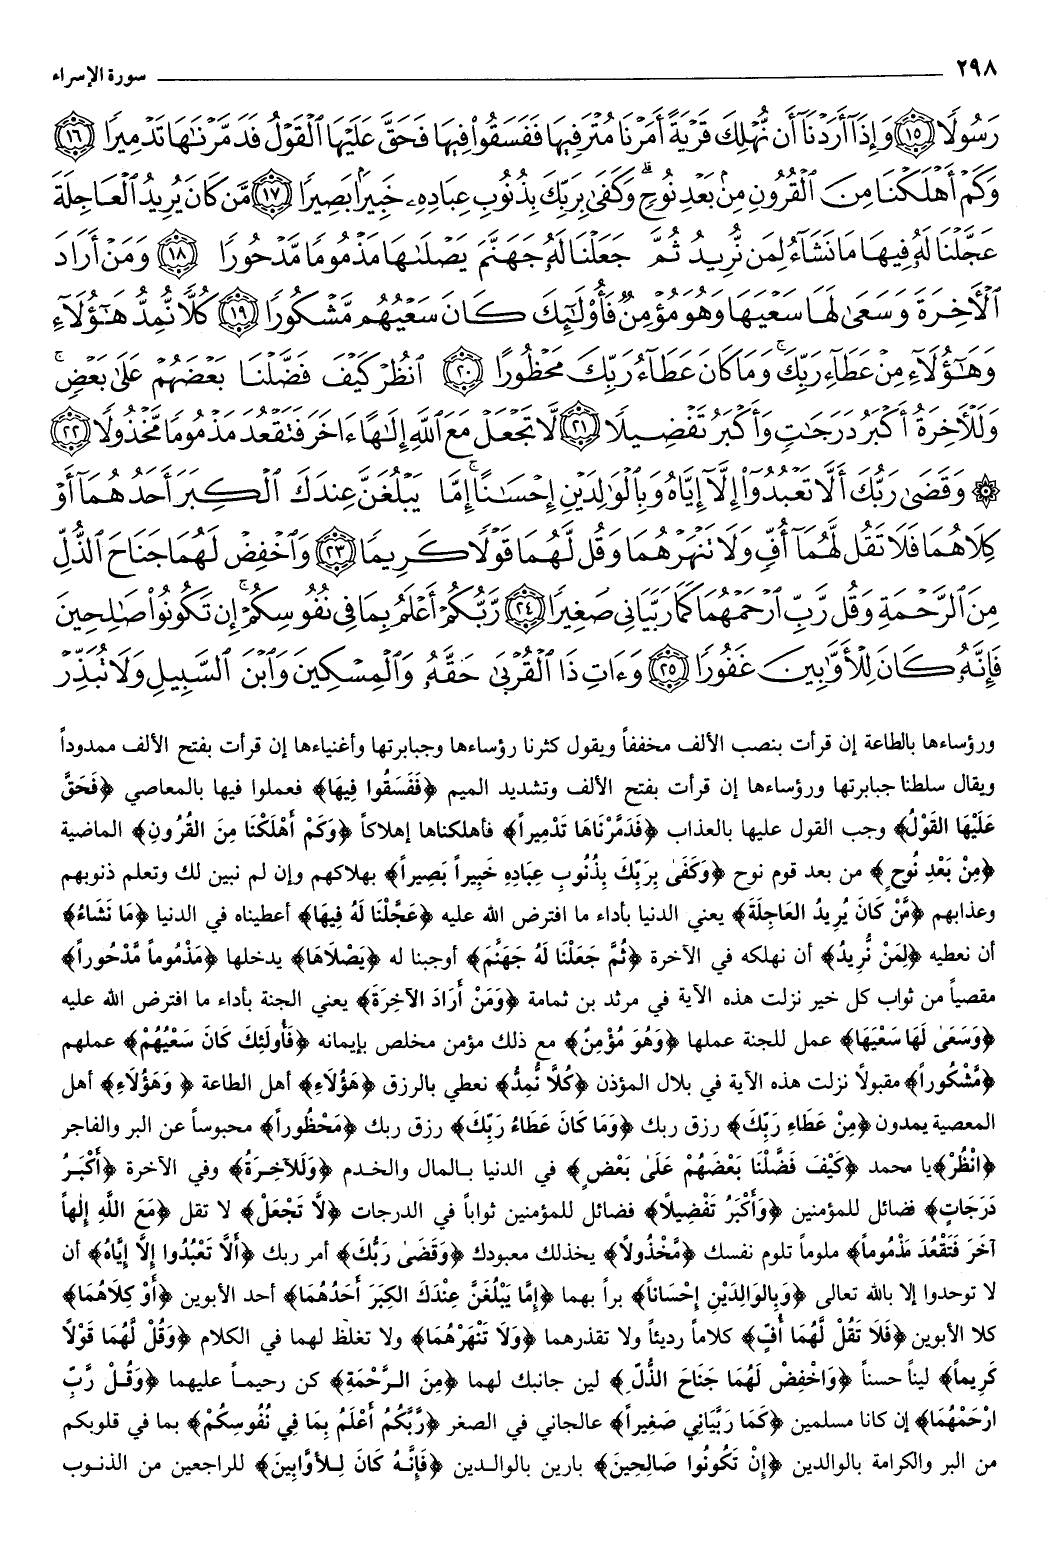 ٢٩٨ سورة الإسراء
رَسُولًا ١٥ وَإِذَآ أَرَدْنَآ أَن نُّهْلِكَ قَرْيَةً أَمَرْنَا مُتْرَفِيهَا فَفَسَقُوا۟ فِيهَا فَحَقَّ عَلَيْهَا ٱلْقَوْلُ فَدَمَّرْنَٰهَا تَدْمِيرًا ١٦
وَكَمْ أَهْلَكْنَا مِنَ ٱلْقُرُونِ مِنۢ بَعْدِ نُوحٍ ۗ وَكَفَىٰ بِرَبِّكَ بِذُنُوبِ عِبَادِهِۦ خَبِيرًۢا بَصِيرًا ١٧ مَّن كَانَ يُرِيدُ ٱلْعَاجِلَةَ
عَجَّلْنَا لَهُۥ فِيهَا مَا نَشَآءُ لِمَن نُّرِيدُ ثُمَّ جَعَلْنَا لَهُۥ جَهَنَّمَ يَصْلَىٰهَا مَذْمُومًا مَّدْحُورًا ١٨ وَمَنْ أَرَادَ
ٱلْءَاخِرَةَ وَسَعَىٰ لَهَا سَعْيَهَا وَهُوَ مُؤْمِنٌ فَأُو۟لَٰٓئِكَ كَانَ سَعْيُهُم مَّشْكُورًا ١٩ كُلًّا نُّمِدُّ هَٰٓؤُلَآءِ
وَهَٰٓؤُلَآءِ مِنْ عَطَآءِ رَبِّكَ ۚ وَمَا كَانَ عَطَآءُ رَبِّكَ مَحْظُورًا ٢٠ ٱنظُرْ كَيْفَ فَضَّلْنَا بَعْضَهُمْ عَلَىٰ بَعْضٍ ۚ
وَلَلْءَاخِرَةُ أَكْبَرُ دَرَجَٰتٍ وَأَكْبَرُ تَفْضِيلًا ٢١ لَّا تَجْعَلْ مَعَ ٱللَّهِ إِلَٰهًا ءَاخَرَ فَتَقْعُدَ مَذْمُومًا مَّخْذُولًا ٢٢
۞ وَقَضَىٰ رَبُّكَ أَلَّا تَعْبُدُوٓا۟ إِلَّآ إِيَّاهُ وَبِٱلْوَٰلِدَيْنِ إِحْسَٰنًا ۚ إِمَّا يَبْلُغَنَّ عِندَكَ ٱلْكِبَرَ أَحَدُهُمَآ أَوْ
كِلَاهُمَا فَلَا تَقُل لَّهُمَآ أُفٍّ وَلَا تَنْهَرْهُمَا وَقُل لَّهُمَا قَوْلًا كَرِيمًا ٢٣ وَٱخْفِضْ لَهُمَا جَنَاحَ ٱلذُّلِّ
مِنَ ٱلرَّحْمَةِ وَقُل رَّبِّ ٱرْحَمْهُمَا كَمَا رَبَّيَانِى صَغِيرًا ٢٤ رَّبُّكُمْ أَعْلَمُ بِمَا فِى نُفُوسِكُمْ ۚ إِن تَكُونُوا۟ صَٰلِحِينَ
فَإِنَّهُۥ كَانَ لِلْأَوَّٰبِينَ غَفُورًا ٢٥ وَءَاتِ ذَا ٱلْقُرْبَىٰ حَقَّهُۥ وَٱلْمِسْكِينَ وَٱبْنَ ٱلسَّبِيلِ وَلَا تُبَذِّرْ
ورؤساءها بالطاعة إن قرأت بنصب الألف مخففاً ويقول كثرنا رؤساءها وجبابرتها وأغنياءها إن قرأت بفتح الألف ممدوداً
ويقال سلطنا جبابرتها ورؤساءها إن قرأت بفتح الألف وتشديد الميم ﴿فَفَسَقُوا فِيهَا﴾ فعملوا فيها بالمعاصي ﴿فَحَقَّ
عَلَيْهَا القَوْلُ﴾ وجب القول عليها بالعذاب ﴿فَدَمَّرْنَاهَا تَدْمِيراً﴾ فأهلكناها إهلاكاً ﴿وَكَمْ أَهْلَكْنَا مِنَ القُرُونِ﴾ الماضية
﴿مِنْ بَعْدِ نُوحٍ﴾ من بعد قوم نوح ﴿وَكَفَىٰ بِرَبِّكَ بِذُنُوبِ عِبَادِهِ خَبِيراً بَصِيراً﴾ بهلاكهم وإن لم نبين لك وتعلم ذنوبهم
وعذابهم ﴿مَّنْ كَانَ يُرِيدُ العَاجِلَةَ﴾ يعني الدنيا بأداء ما افترض الله عليه ﴿عَجَّلْنَا لَهُ فِيهَا﴾ أعطيناه في الدنيا ﴿مَا نَشَاءُ﴾
أن نعطيه ﴿لِمَنْ نُّرِيدُ﴾ أن نهلكه في الآخرة ﴿ثُمَّ جَعَلْنَا لَهُ جَهَنَّمَ﴾ أوجبنا له ﴿يَصْلَاهَا﴾ يدخلها ﴿مَذْمُوماً مَّدْحُوراً﴾
مقصياً من ثواب كل خير نزلت هذه الآية في مرثد بن ثمامة ﴿وَمَنْ أَرَادَ الآخِرَةَ﴾ يعني الجنة بأداء ما افترض الله عليه
﴿وَسَعَىٰ لَهَا سَعْيَهَا﴾ عمل للجنة عملها ﴿وَهُوَ مُؤْمِنٌ﴾ مع ذلك مؤمن مخلص بإيمانه ﴿فَأُولَئِكَ كَانَ سَعْيُهُمْ﴾ عملهم
﴿مَّشْكُوراً﴾ مقبولاً نزلت هذه الآية في بلال المؤذن ﴿كُلاًّ نُّمِدُّ﴾ نعطي بالرزق ﴿هَؤُلَاءِ﴾ أهل الطاعة ﴿وَهَؤُلَاءِ﴾ أهل
المعصية يمدون ﴿مِنْ عَطَاءِ رَبِّكَ﴾ رزق ربك ﴿وَمَا كَانَ عَطَاءُ رَبِّكَ﴾ رزق ربك ﴿مَحْظُوراً﴾ محبوساً عن البر والفاجر
﴿انْظُرْ﴾ يا محمد ﴿كَيْفَ فَضَّلْنَا بَعْضَهُمْ عَلَىٰ بَعْضٍ﴾ في الدنيا بالمال والخدم ﴿وَلَلآخِرَةُ﴾ وفي الآخرة ﴿أَكْبَرُ
دَرَجَاتٍ﴾ فضائل للمؤمنين ﴿وَأَكْبَرُ تَفْضِيلاً﴾ فضائل للمؤمنين ثواباً في الدرجات ﴿لاَّ تَجْعَلْ﴾ لا تقل ﴿مَعَ اللَّهِ إِلٰهاً
آخَرَ فَتَقْعُدَ مَذْمُوماً﴾ ملوماً تلوم نفسك ﴿مَّخْذُولاً﴾ يخذلك معبودك ﴿وَقَضَىٰ رَبُّكَ﴾ أمر ربك ﴿أَلاَّ تَعْبُدُوا إِلاَّ إِيَّاهُ﴾ أن
لا توحدوا إلا بالله تعالى ﴿وَبِالوَالِدَيْنِ إِحْسَاناً﴾ براً بهما ﴿إِمَّا يَبْلُغَنَّ عِنْدَكَ الكِبَرَ أَحَدُهُمَا﴾ أحد الأبوين ﴿أَوْ كِلَاهُمَا﴾
كلا الأبوين ﴿فَلَا تَقُلْ لَّهُمَا أُفٍّ﴾ كلاماً رديئاً ولا تقذرهما ﴿وَلَا تَنْهَرْهُمَا﴾ ولا تغلظ لهما في الكلام ﴿وَقُلْ لَّهُمَا قَوْلاً
كَرِيماً﴾ ليناً حسناً ﴿وَاخْفِضْ لَهُمَا جَنَاحَ الذُّلِّ﴾ لين جانبك لهما ﴿مِنَ الرَّحْمَةِ﴾ كن رحيماً عليهما ﴿وَقُلْ رَّبِّ
ارْحَمْهُمَا﴾ إن كانا مسلمين ﴿كَمَا رَبَّيَانِي صَغِيراً﴾ عالجاني في الصغر ﴿رَّبُّكُمْ أَعْلَمُ بِمَا فِي نُفُوسِكُمْ﴾ بما في قلوبكم
من البر والكرامة بالوالدين ﴿إِنْ تَكُونُوا صَالِحِينَ﴾ بارين بالوالدين ﴿فَإِنَّهُ كَانَ لِلأَوَّابِينَ﴾ للراجعين من الذنوب